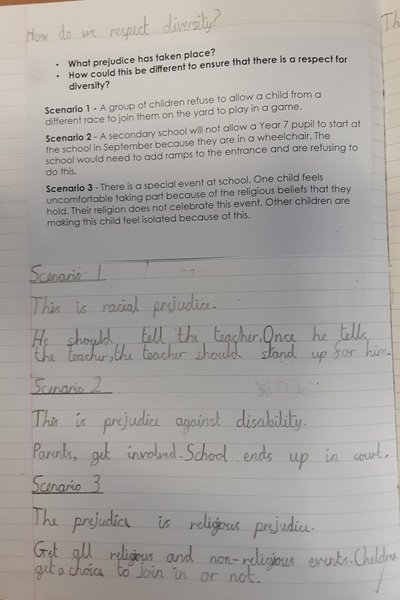 How do we respect diversity?
Th
• What prejudice has taken place?
• How could this be different to ensure that there is a respect for
diversity?
Scenario 1 - A group of children refuse to allow a child from a
different race to join them on the yard to play in a game.
Scenario 2 - A secondary school will not allow a Year 7 pupil to start at
the school in September because they are in a wheelchair. The
school would need to add ramps to the entrance and are refusing to
do this.
Scenario 3 - There is a special event at school. One child feels
uncomfortable taking part because of the religious beliefs that they
hold. Their religion does not celebrate this event. Other children are
making this child feel isolated because of this.
Scenario 1
This is racial prejudice.
He should tell the teacher. Once he tells
the teacher, the teacher should stand up for him.
Scenario 2
This is prejudice against disability.
Parents, get involved. School ends up in court.
Scenario 3
The prejudice is religious prejudice.
Get all religious and non-religious events. Children
get a choice to join in or not.